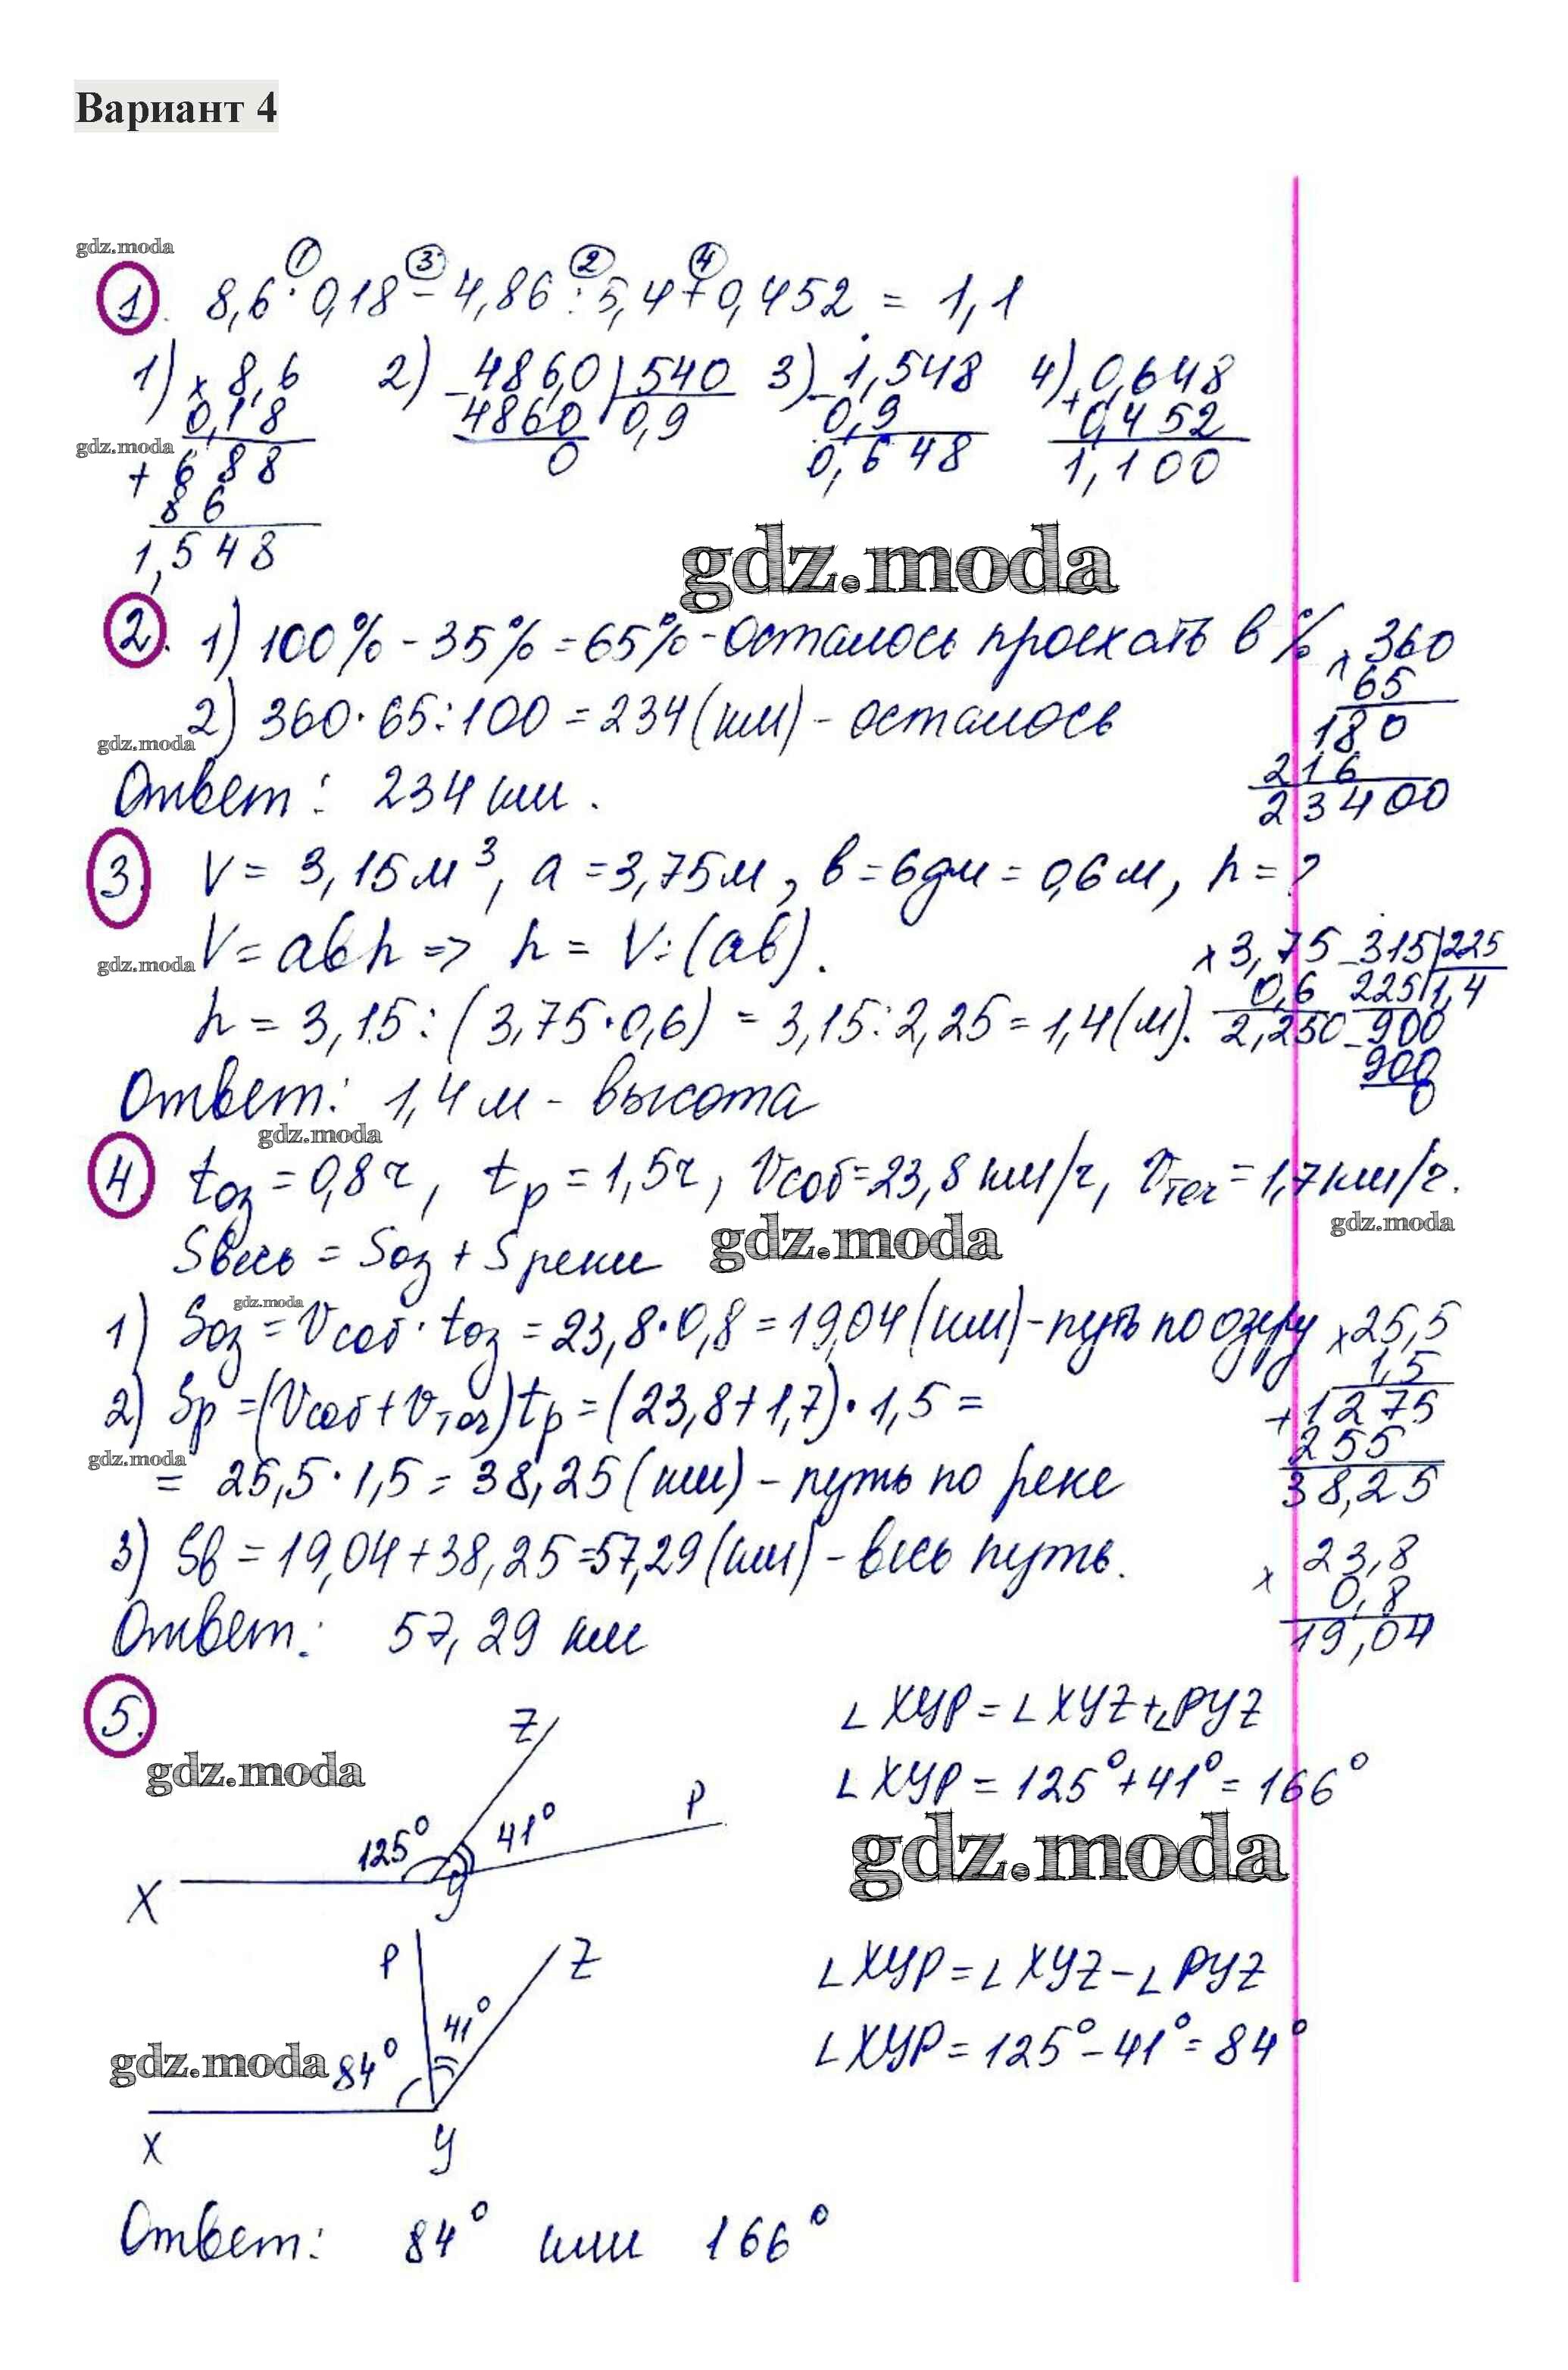 Вариант 4
gdz.moda
① ③ ② ④
1. 8,6 · 0,18 − 4,86 : 5,4 + 0,452 = 1,1
1) × 8,6 2) − 486,0 | 540 3) − 1,548 4) + 0,648
0,18 4860 0,9 0,9 0,452
gdz.moda
+ 688 0 0,648 1,100
86
1,548
gdz.moda
2. 1) 100% − 35% = 65% - осталось проехать в % × 360
65
2) 360 · 65 : 100 = 234 (км) - осталось 180
gdz.moda
216
Ответ: 234 км. 23400
3. V = 3,15 м³, a = 3,75 м, в = 6 дм = 0,6 м, h = ?
gdz.moda
V = aвh => h = V : (aв). × 3,75 − 315 | 225
0,6 225 1,4
h = 3,15 : (3,75 · 0,6) = 3,15 : 2,25 = 1,4 (м). 2,250 − 900
900
0
Ответ: 1,4 м - высота
gdz.moda
4 tоз = 0,8 ч, tр = 1,5 ч, Vсоб = 23,8 км/ч, Vтеч = 1,7 км/ч.
gdz.moda
Sвесь = Sоз + Sреки gdz.moda
gdz.moda
1) Sоз = Vсоб · tоз = 23,8 · 0,8 = 19,04 (км) - путь по озеру × 25,5
1,5
2) Sр = (Vсоб + Vтеч) tр = (23,8 + 1,7) · 1,5 = + 1275
gdz.moda
255
= 25,5 · 1,5 = 38,25 (км) - путь по реке 38,25
3) Sв = 19,04 + 38,25 = 57,29 (км) - весь путь. × 23,8
0,8
Ответ: 57,29 км 19,04
5. Z ∠XYP = ∠XYZ + ∠PYZ
gdz.moda
P ∠XYP = 125° + 41° = 166°
125° 41°
gdz.moda
X Y
P Z ∠XYP = ∠XYZ − ∠PYZ
41°
gdz.moda 84° ∠XYP = 125° − 41° = 84°
X Y
Ответ: 84° или 166°